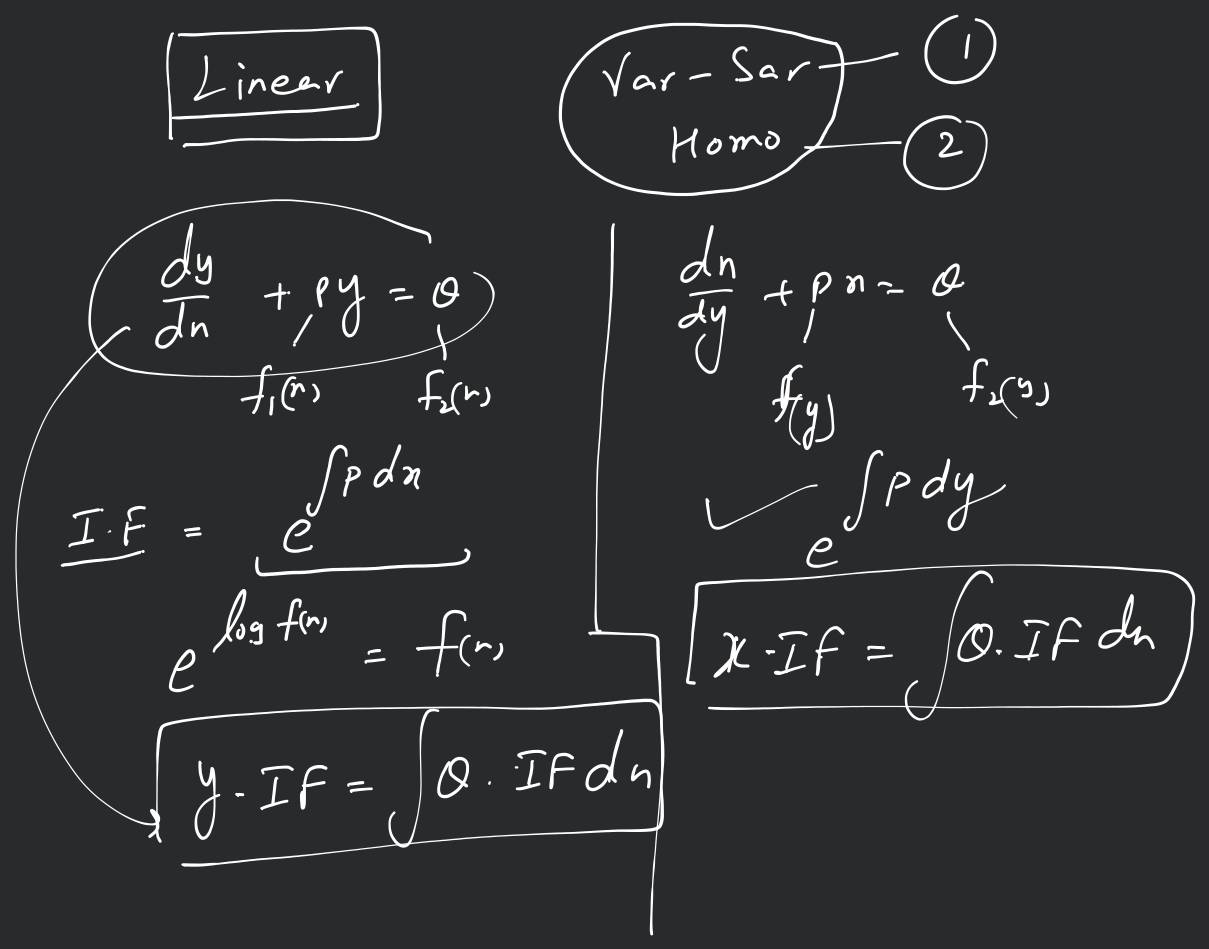 Linear
Var - Sar ①
Homo ②
dy/dn + py = Q
f₁(n) f₂(n)
I.F = e^∫p dn
e^log f(n) = f(n)
y · IF = ∫Q · IF dn
dn/dy + pn = Q
f(y) f₂(y)
✓ e^∫p dy
x · IF = ∫Q · IF dn